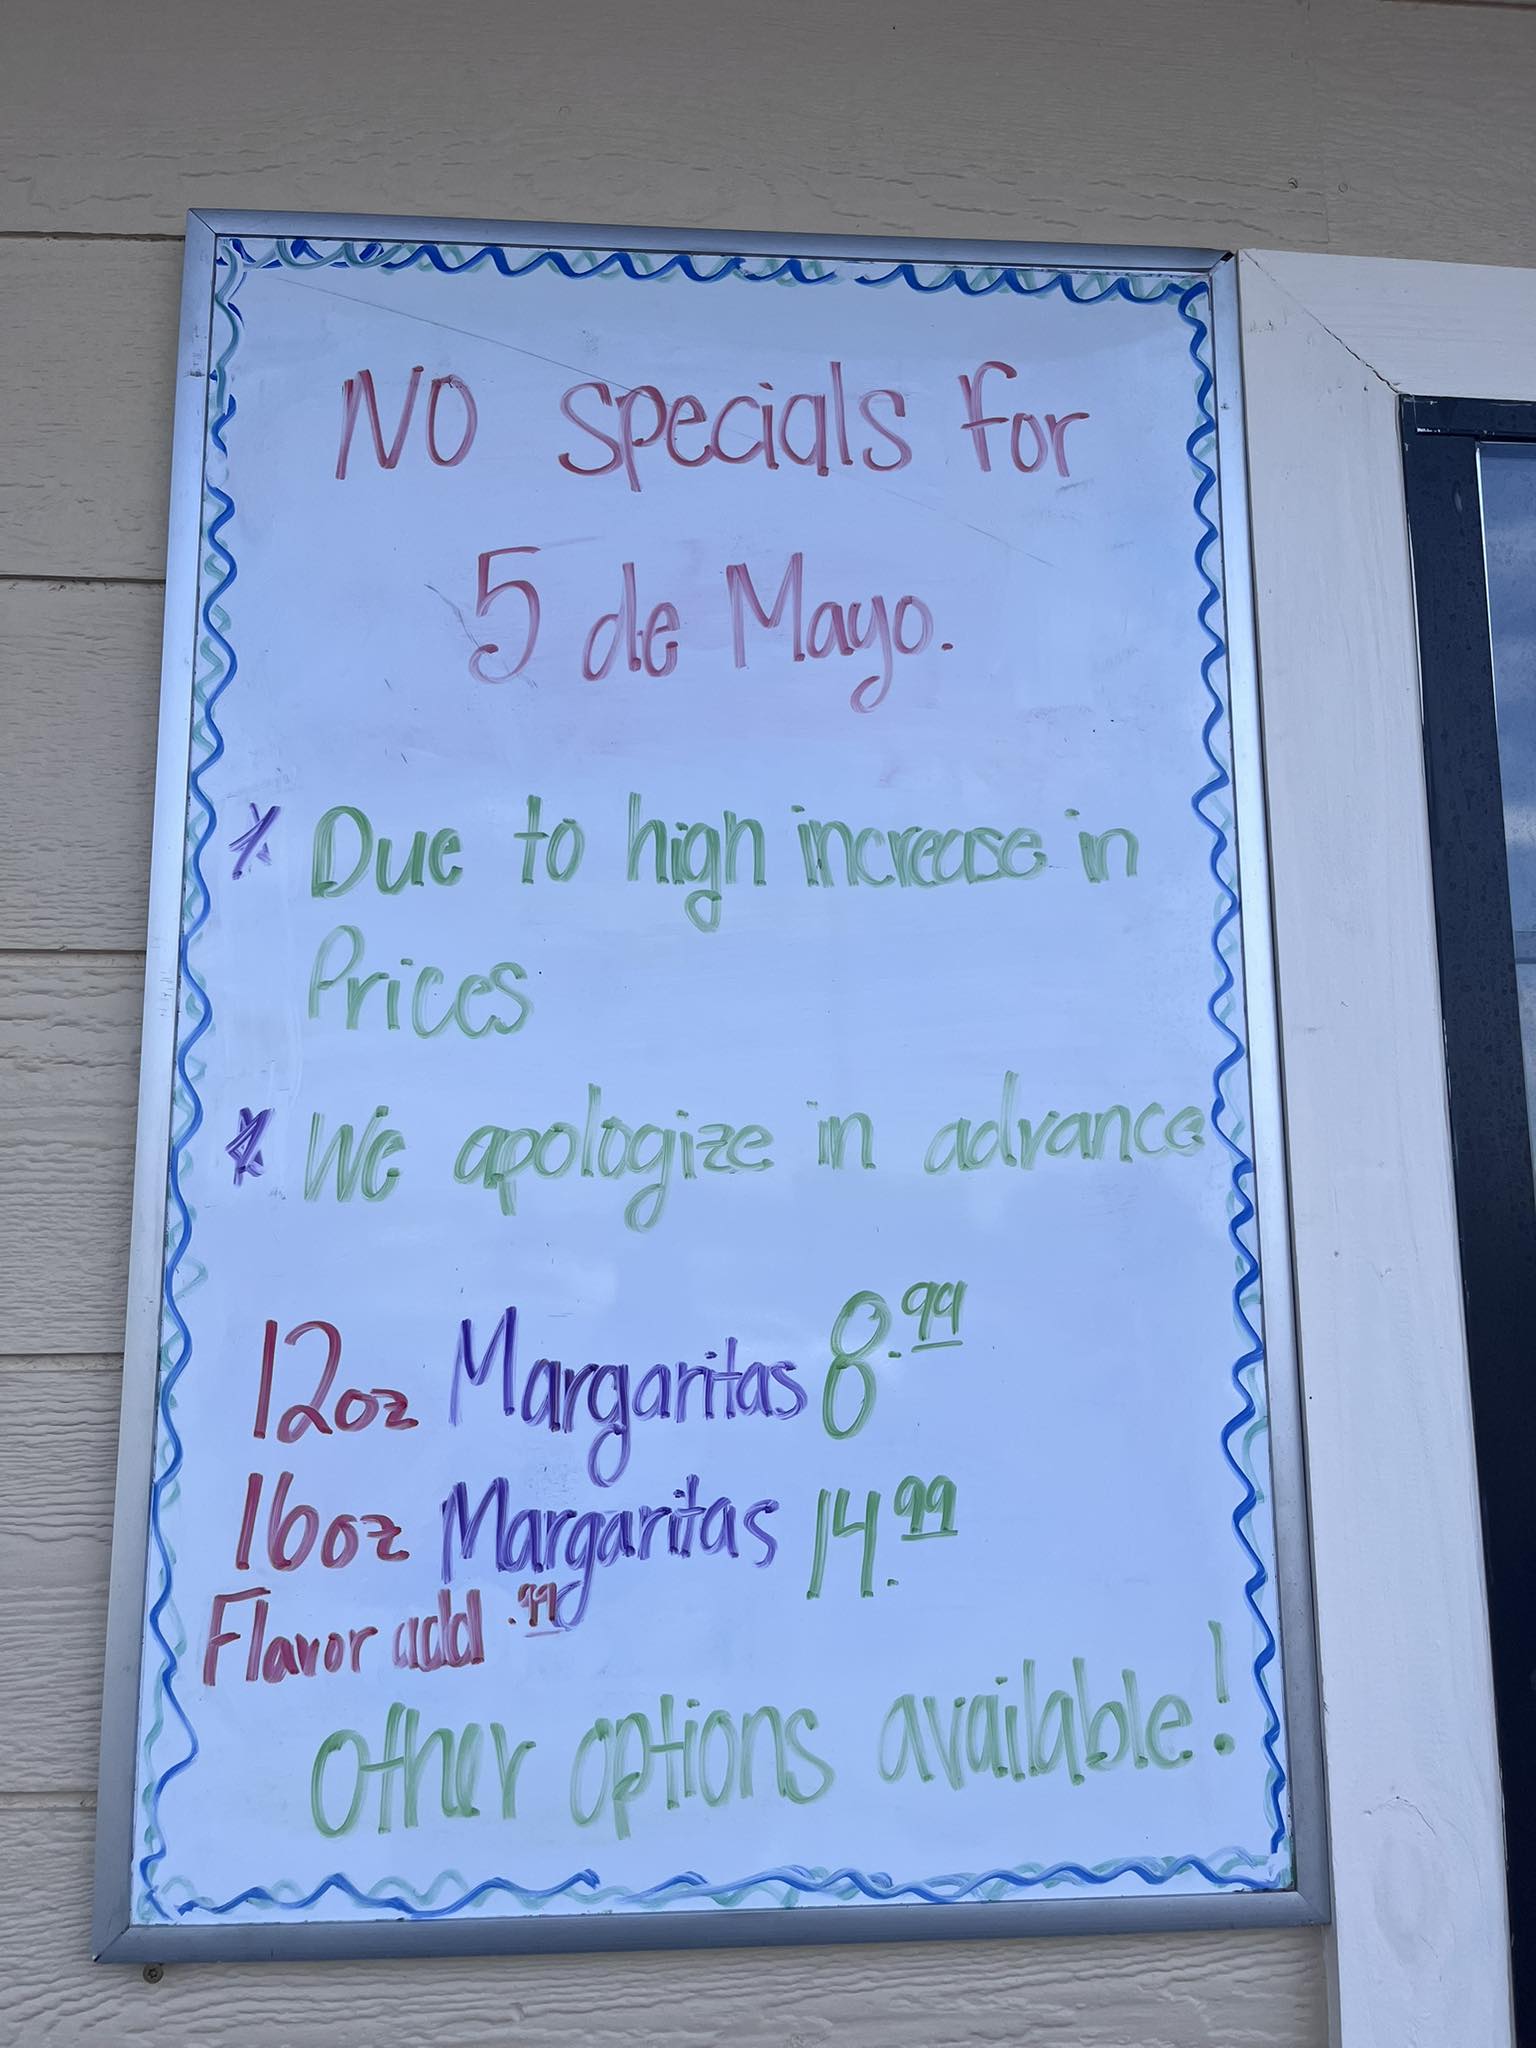 NO specials for
5 de Mayo.
* Due to high increase in
Prices
* We apologize in advance
12oz Margaritas 8.99
16oz Margaritas 14.99
Flavor add .99
Other options available!